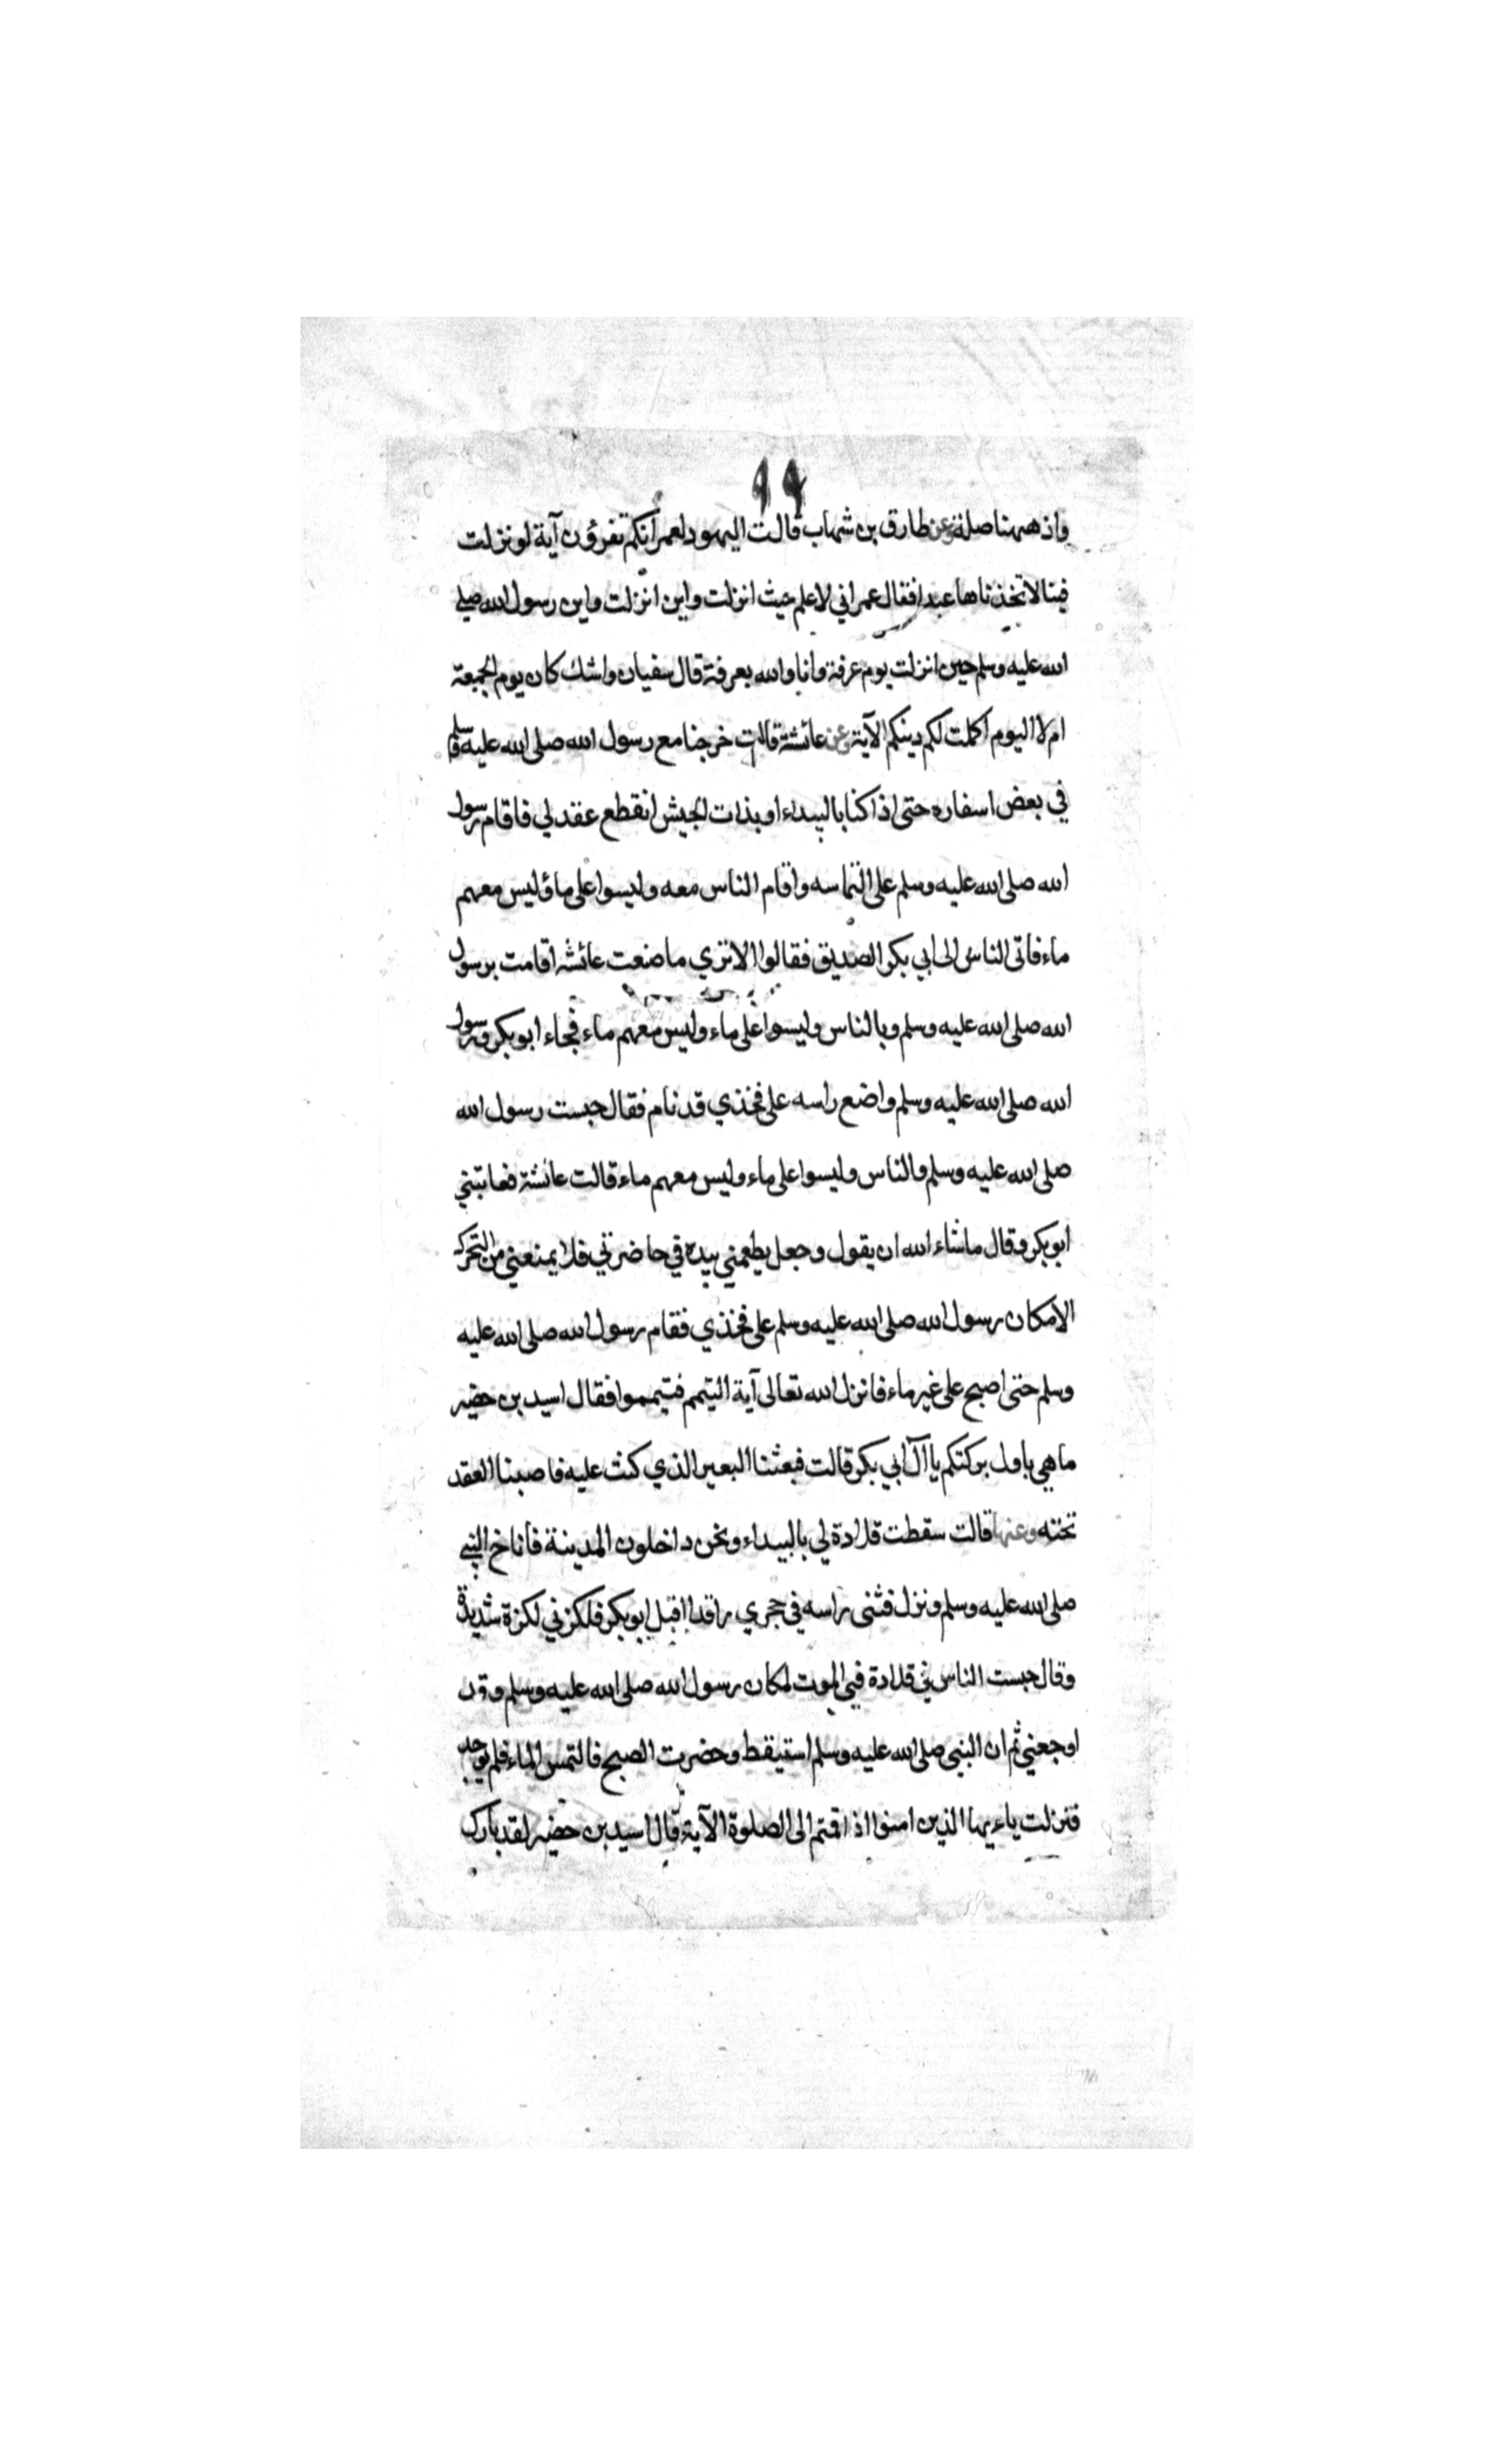 ٩٩
واذ ههنا صلة وعن طارق بن شهاب قالت اليهود لعمر انكم تقرؤن آية لو نزلت
فينا لاتخذناها عيدا فقال عمر اني لاعلم حيث انزلت واين انزلت واين رسول الله صلى
الله عليه وسلم حين انزلت يوم عرفة وانا والله بعرفة قال سفيان واشك كان يوم الجمعة
ام لا اليوم اكملت لكم دينكم الآية وعن عائشة قالت خرجنا مع رسول الله صلى الله عليه وسلم
في بعض اسفاره حتى اذا كنا بالبيداء او بذات الجيش انقطع عقد لي فاقام رسول
الله صلى الله عليه وسلم على التماسه واقام الناس معه وليسوا على ماء وليس معهم
ماء فاتى الناس الى ابي بكر الصديق فقالوا الا تري ما صنعت عائشه اقامت برسول
الله صلى الله عليه وسلم وبالناس وليسوا على ماء وليس معهم ماء فجاء ابو بكر ورسول
الله صلى الله عليه وسلم واضع راسه على فخذي قد نام فقال حبست رسول الله
صلى الله عليه وسلم والناس وليسوا على ماء وليس معهم ماء قالت عائشة فعاتبني
ابو بكر وقال ما شاء الله ان يقول وجعل يطعنني بيده في خاضرتي فلا يمنعني من التحرك
الا مكان رسول الله صلى الله عليه وسلم على فخذي فقام رسول الله صلى الله عليه
وسلم حتى اصبح على غير ماء فانزل الله تعالى آية التيمم فتيمموا فقال اسيد بن حضير
ما هي باول بركتكم يا آل ابي بكر قالت فبعثنا البعير الذي كنت عليه فاصبنا العقد
تحته وعنها قالت سقطت قلادة لي بالبيداء ونحن داخلون المدينة فأناخ النبي
صلى الله عليه وسلم ونزل فثنى راسه في حجري راقدا اقبل ابو بكر فلكزني لكزة شديدة
وقال حبست الناس في قلادة فبي الموت لمكان رسول الله صلى الله عليه وسلم وقد
اوجعني ثم ان النبي صلى الله عليه وسلم استيقظ وحضرت الصبح فالتمس الماء فلم يوجد
فنزلت ياءيها الذين امنوا اذا قمتم الى الصلوة الآية قال اسيد بن حضير لقد بارك